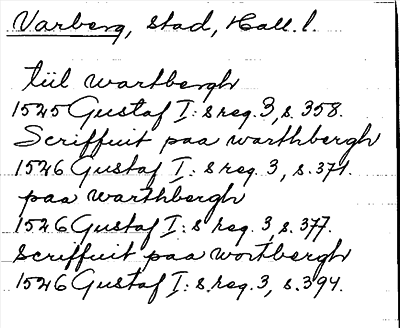 Varberg, stad, Hall. l.
tiil wartbergh
1525 Gustaf I:s reg. 3, s. 358.
Scriffuit paa warthbergh
1526 Gustaf I:s reg. 3, s. 371.
paa warthbergh
1526 Gustaf I:s reg. 3, s. 377.
scriffuit paa wortbergh
1526 Gustaf I:s. reg. 3, s. 394.